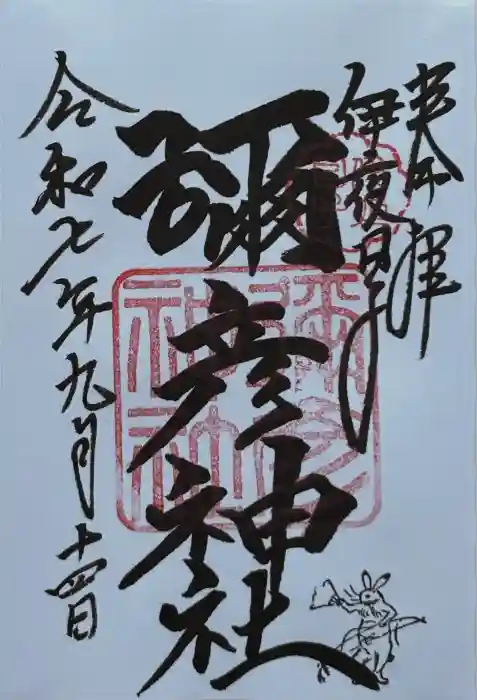 奉拝
伊夜日子
彌彦神社
令和七年九月十四日